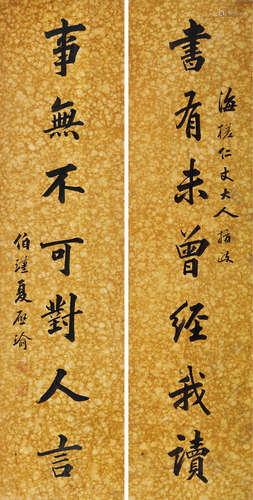 書有未曾經我讀
海槎仁丈大人指政
事無不可對人言
伯瑾夏啟瑜